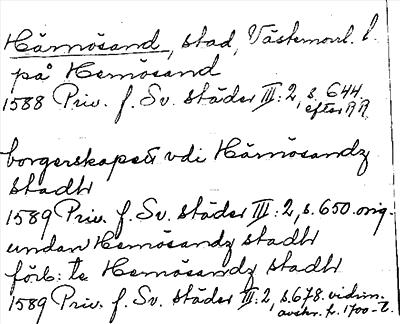 Härnösand, stad, Västernorrl. l.
på Hernösand
1588 Priv. f. Sv. städer III:2, s. 644.
efter RR
borgerskapett vdi Härnösandz
stadh
1589 Priv. f. Sv. städer III:2, s. 650. orig.
undan Hernösandz stadh
förb: te Hernösandz stadh
1589 Priv. f. Sv. städer III:2, s. 678. vidim.
avskr. fr. 1700-t.